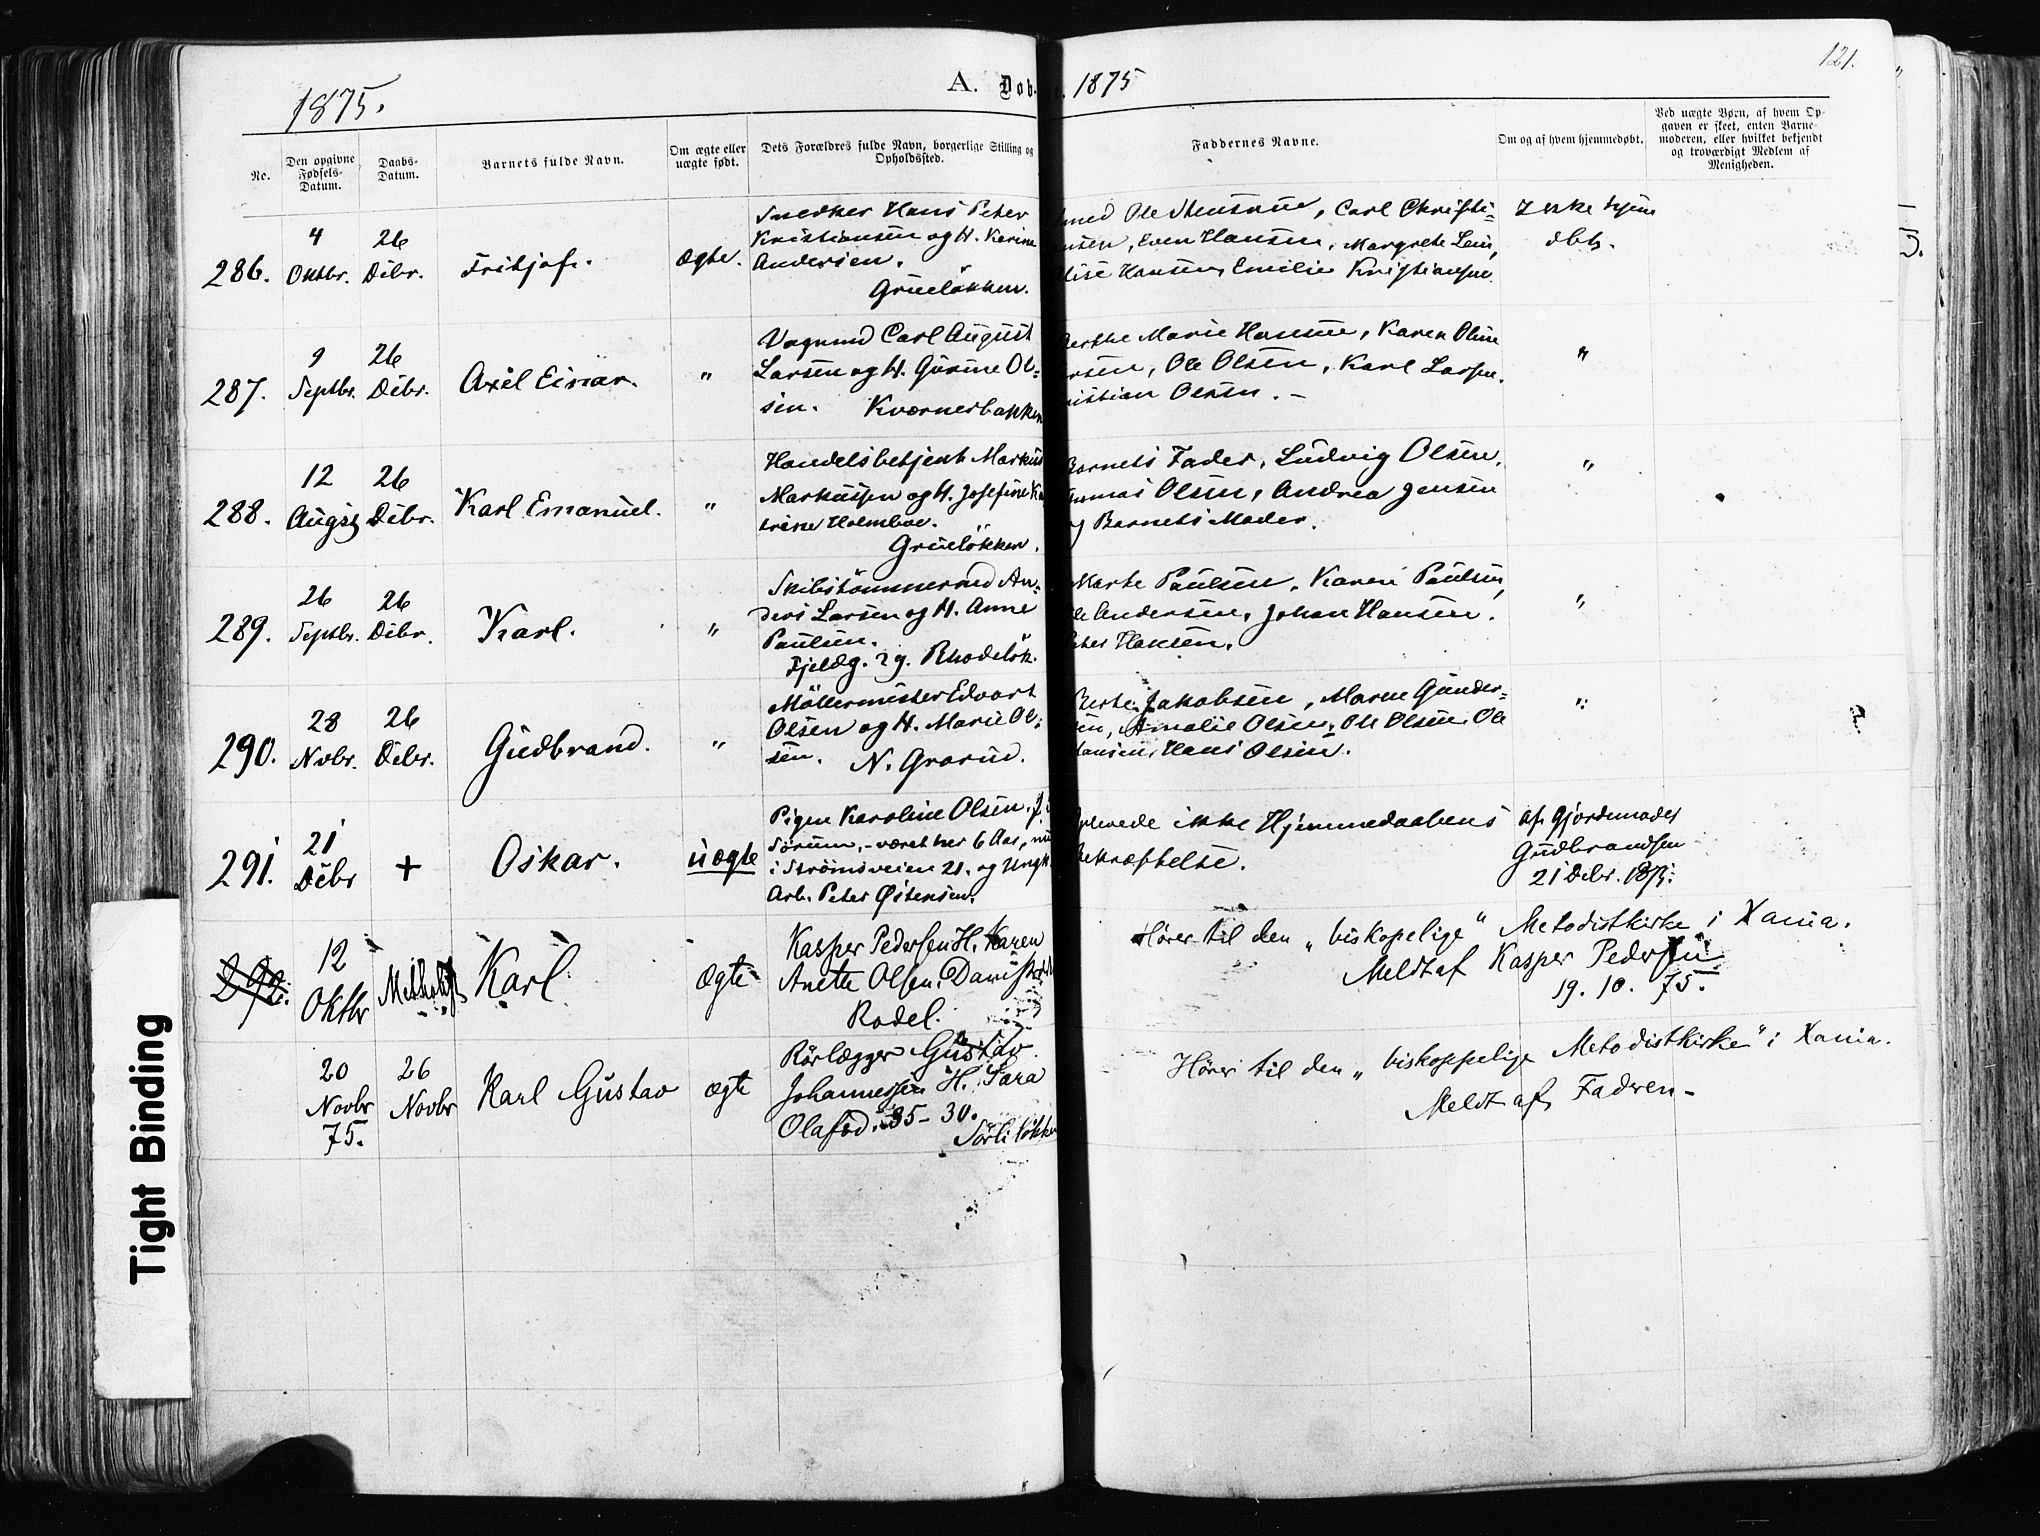 121.
1875.
A. Døb. 1875
No.
Den opgivne Fødsels-Datum.
Daabs-Datum.
Barnets fulde Navn.
Om ægte eller uægte født.
Dets Forældres fulde Navn, borgerlige Stilling og Opholdssted.
Faddernes Navne.
Om og af hvem hjemmedøbt.
Ved uægte Børn, af hvem Opgaven er skeet, enten Barnemoderen, eller hvilket bekjendt og troværdigt Medlem af Menigheden.
286.
4 Oktbr.
26 Dcbr.
Fritjof.
ægte.
Snedker Hans Peter
Kristiansen og H. Karine
Andersen.
Grüeløkken.
Ole Stensrue, Carl Christi=
nsen, Even Hansen, Margrete Lein,
Elise Hansen, Emilie Kristiansen.
Ikke hjem
dbt.
287.
9 Septbr.
26 Dcbr.
Axel Einar.
"
Vognmd Carl August
Larsen og H. Gurine Ol=
sen. Kværnerbakken
Berthe Marie Hansen, Karen Oline
Larsen, Ole Olsen, Karl Larsen.
Kristian Olsen. –
"
288.
12 Augst
26 Dcbr.
Karl Emanuel.
"
Handelsbetjent Markus
Markussen og H. Josefine Ka
trine Holmboe.
Grüeløkken.
Barnets Fader, Ludvig Olsen.
Olsen, Andrea Jensen
og Barnets Moder.
"
289.
26 Septbr.
26 Dcbr.
Karl.
"
Skibstømmermd An=
ders Larsen og H. Anne
Paulsen.
Fjeldg. 29. Rhodeløk.
Marte Paulsen, Karen Paulsen,
Ole Andersen, Johan Hansen.
Peter Hansen.
"
290.
28 Nvbr.
26 Dcbr.
Gudbrand.
"
Møllermester Edvart
Olsen og H. Marie Ol=
sen. N. Grorud.
Berte Jakobsen, Maren Gunder=
sen, Amalie Olsen, Ole Olsen, Ole
Hansen, Hans Olsen.
"
291.
21 Dcbr
+
Oskar.
uægte
Pigen Karoline Olsen, f. i
Sørum, – været her 6 Aar, nu
i Strømsveien 21. og Ungk.
Arb. Peter Østensen.
Krævede ikke Hjemmedaabens
Bekræftelse.
af Gjordemoder
Gudbrandsen
21 Dcbr. 1875.
292.
12 Oktbr
Methodist
Karl
ægte
Kasper Pedersen H. Karen
Anette Olsen,
Rodel.
Hører til den „biskopelige" Metodistkirke i Xania.
Meldt af Kasper Pedersen
19. 10. 75.
20 Novbr 75.
26 Novbr
Karl Gustav
ægte
Rørlægger Gustav
Johannessen H. Sara
Olafsd. 35 – 30.
Sørliløkken
Hører til den „biskoppelige Metodistkirke" i Xania.
Meldt af Fadren –
Tight Binding